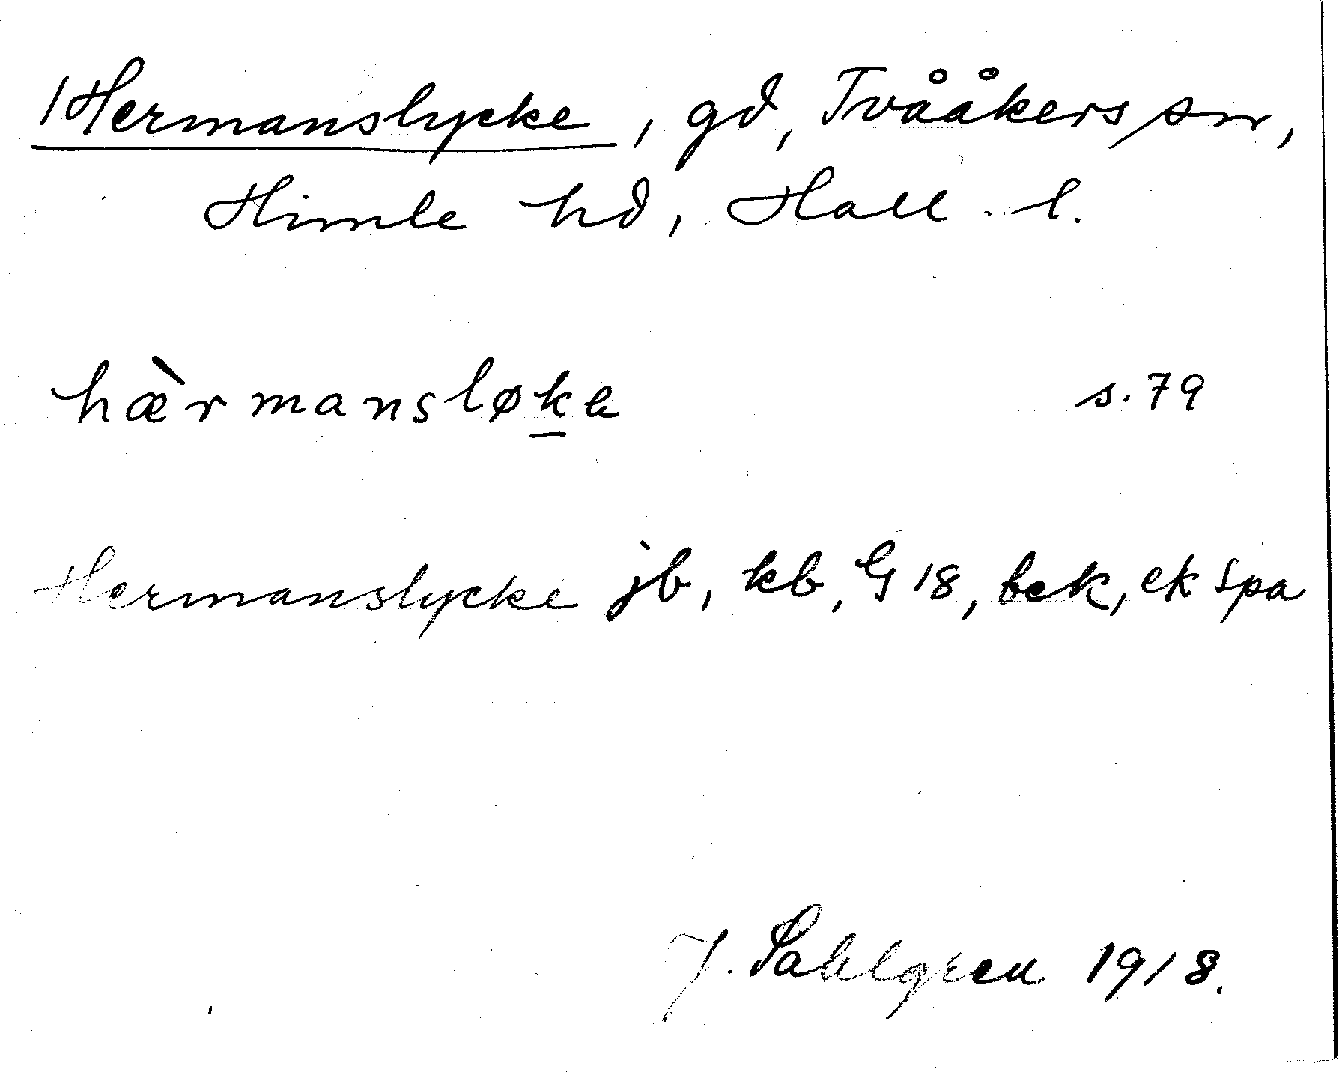 Hermanslycke, gd, Tvååkers sn,
Himle hd, Hall. l.
hæ̀rmansløk̲a s. 79
Hermanslycke jb, kb, G 18, bek, ek spa
J. Sahlgren 1918.